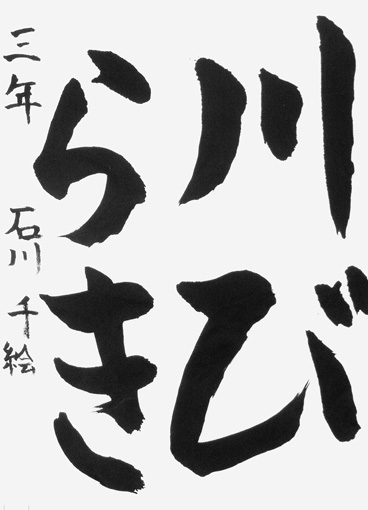 川び
らき
三年 石川 千絵